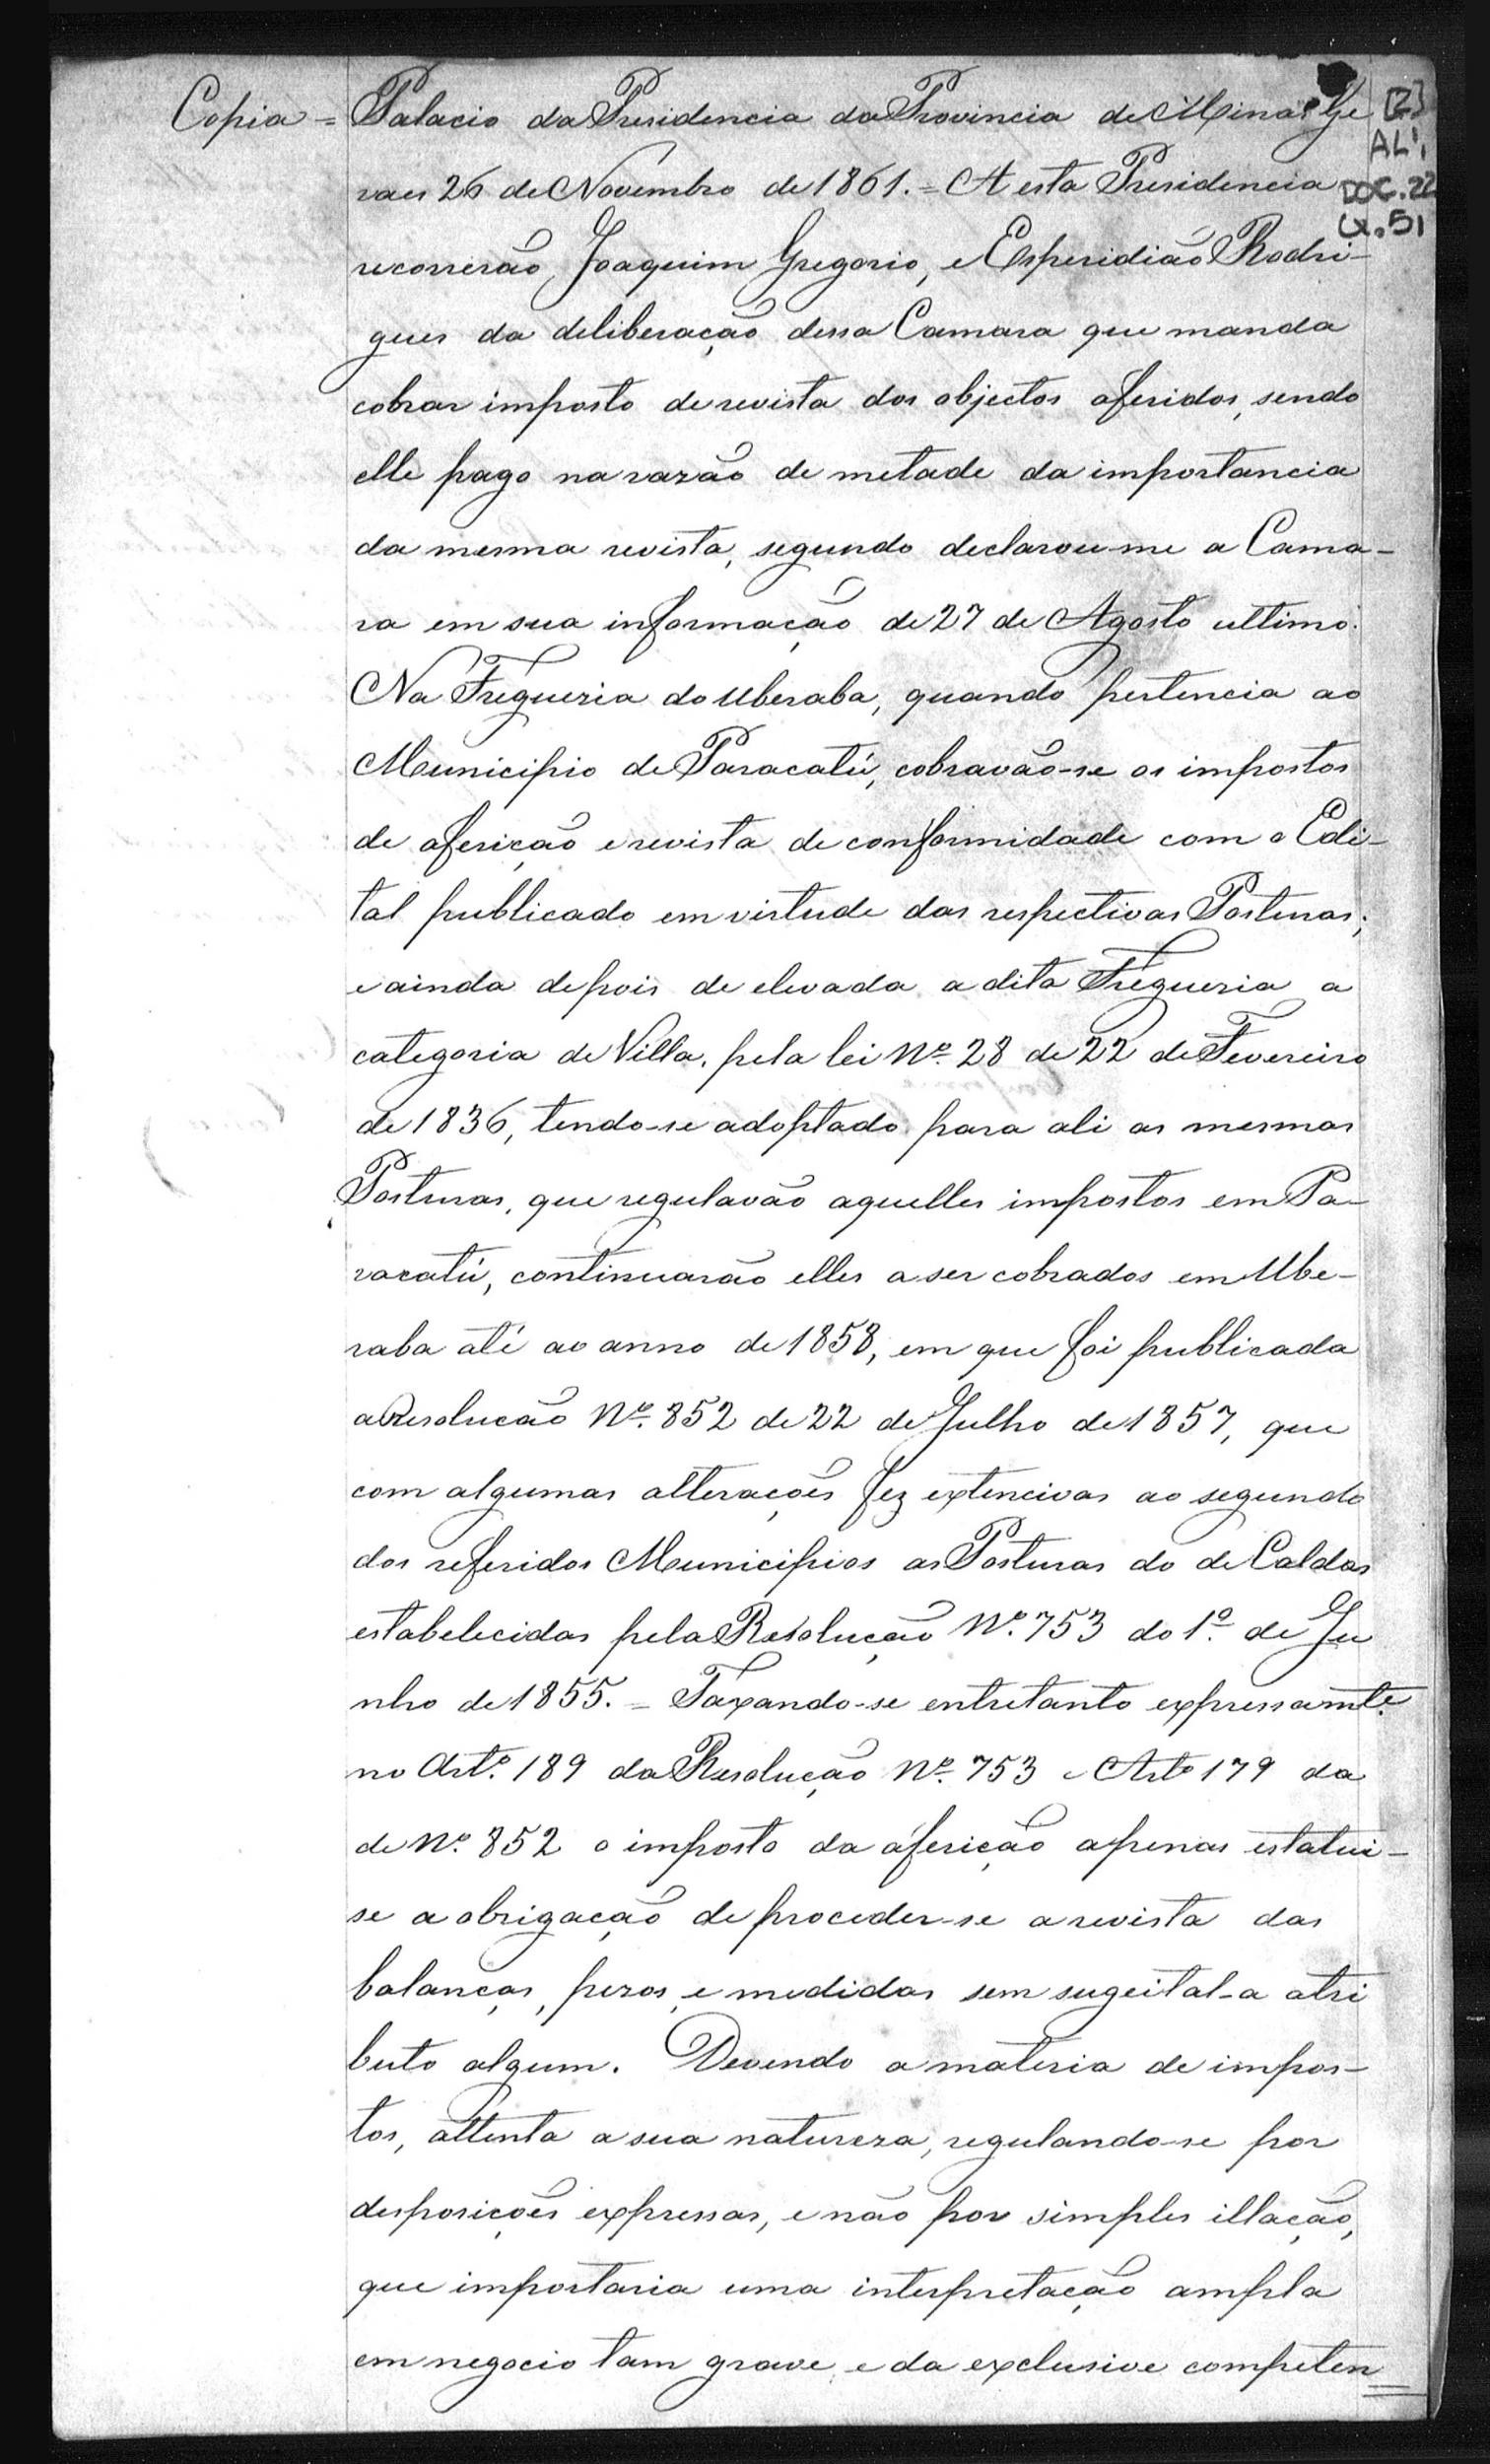 Copia = Palacio da Presidencia da Provincia de Minas Ge
[2]
AL1,
raes 26 de Novembro de 1861. = A esta Presidencia
DOC. 22
CX. 51
recorrerão, Joaquim Gregorio, e Esperidião Rodri-
gues da deliberação dessa Camara que manda
cobrar imposto de revista dos objectos aferidos, sendo
elle pago na razão de metade da importancia
da mesma revista, segundo declarou-me a Cama-
ra em sua informação de 27 de Agosto ultimo.
Na Fregueria do Uberaba, quando pertencia ao
Municipio de Paracatú, cobravão-se os impostos
de aferição e revista de conformidade com o Edi-
tal publicado em virtude das respectivas Posturas;
e ainda depois de elevada a dita Fregueria a
categoria de Villa, pela lei Nº. 28 de 22 de Fevereiro
de 1836, tendo-se adoptado para ali as mesmas
Posturas, que regulavão aquelles impostos em Pa-
racatú, continuarão elles a ser cobrados em Ube-
raba até ao anno de 1858, em que foi publicada
a Resolucão Nº. 852 de 22 de Julho de 1857, que
com algumas alterações fez extencivas ao segundo
dos referidos Municipios as Posturas do de Caldas
estabelecidas pela Resolução Nº. 753 do 1º. de Ju
nho de 1855. = Taxando-se entretanto expressamte.
no Artº. 189 da Resolução Nº. 753 e Artº 179 da
de Nº. 852 o imposto da aferição apenas estatui-
se a obrigação de proceder-se a revista das
balanças, pezos, e medidas sem sugeital-a atri
buto algum. Devendo a materia de impos-
tos, attenta a sua natureza, regulando-se por
desposições expressas, e não por simples illação,
que importaria uma interpretação ampla
em negocio tam grave, e da exclusive competen